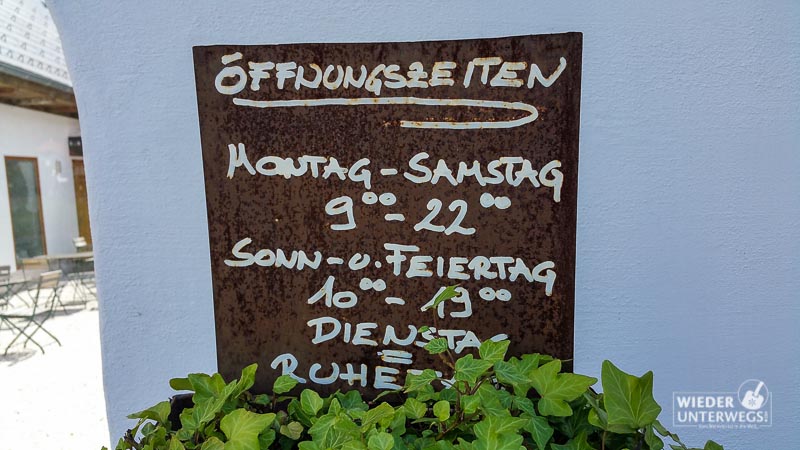 ÖFFNUNGSZEITEN
MONTAG - SAMSTAG
9⁰⁰ - 22⁰⁰
SONN- U. FEIERTAG
10⁰⁰ - 19⁰⁰
DIENSTAG
=
RUHE
WIEDER
UNTERWEGS